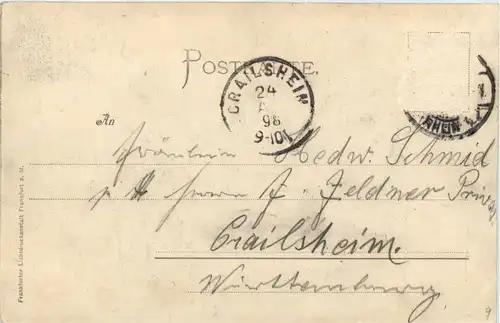 POSTKARTE.
CRAILSHEIM
24
98
9-10
An
Fräulein Hedw. Schmid
Herrn J. Feldner Priv.
Crailsheim.
Württemberg
Frankfurter Lichtdruckanstalt Frankfurt a. M.
9